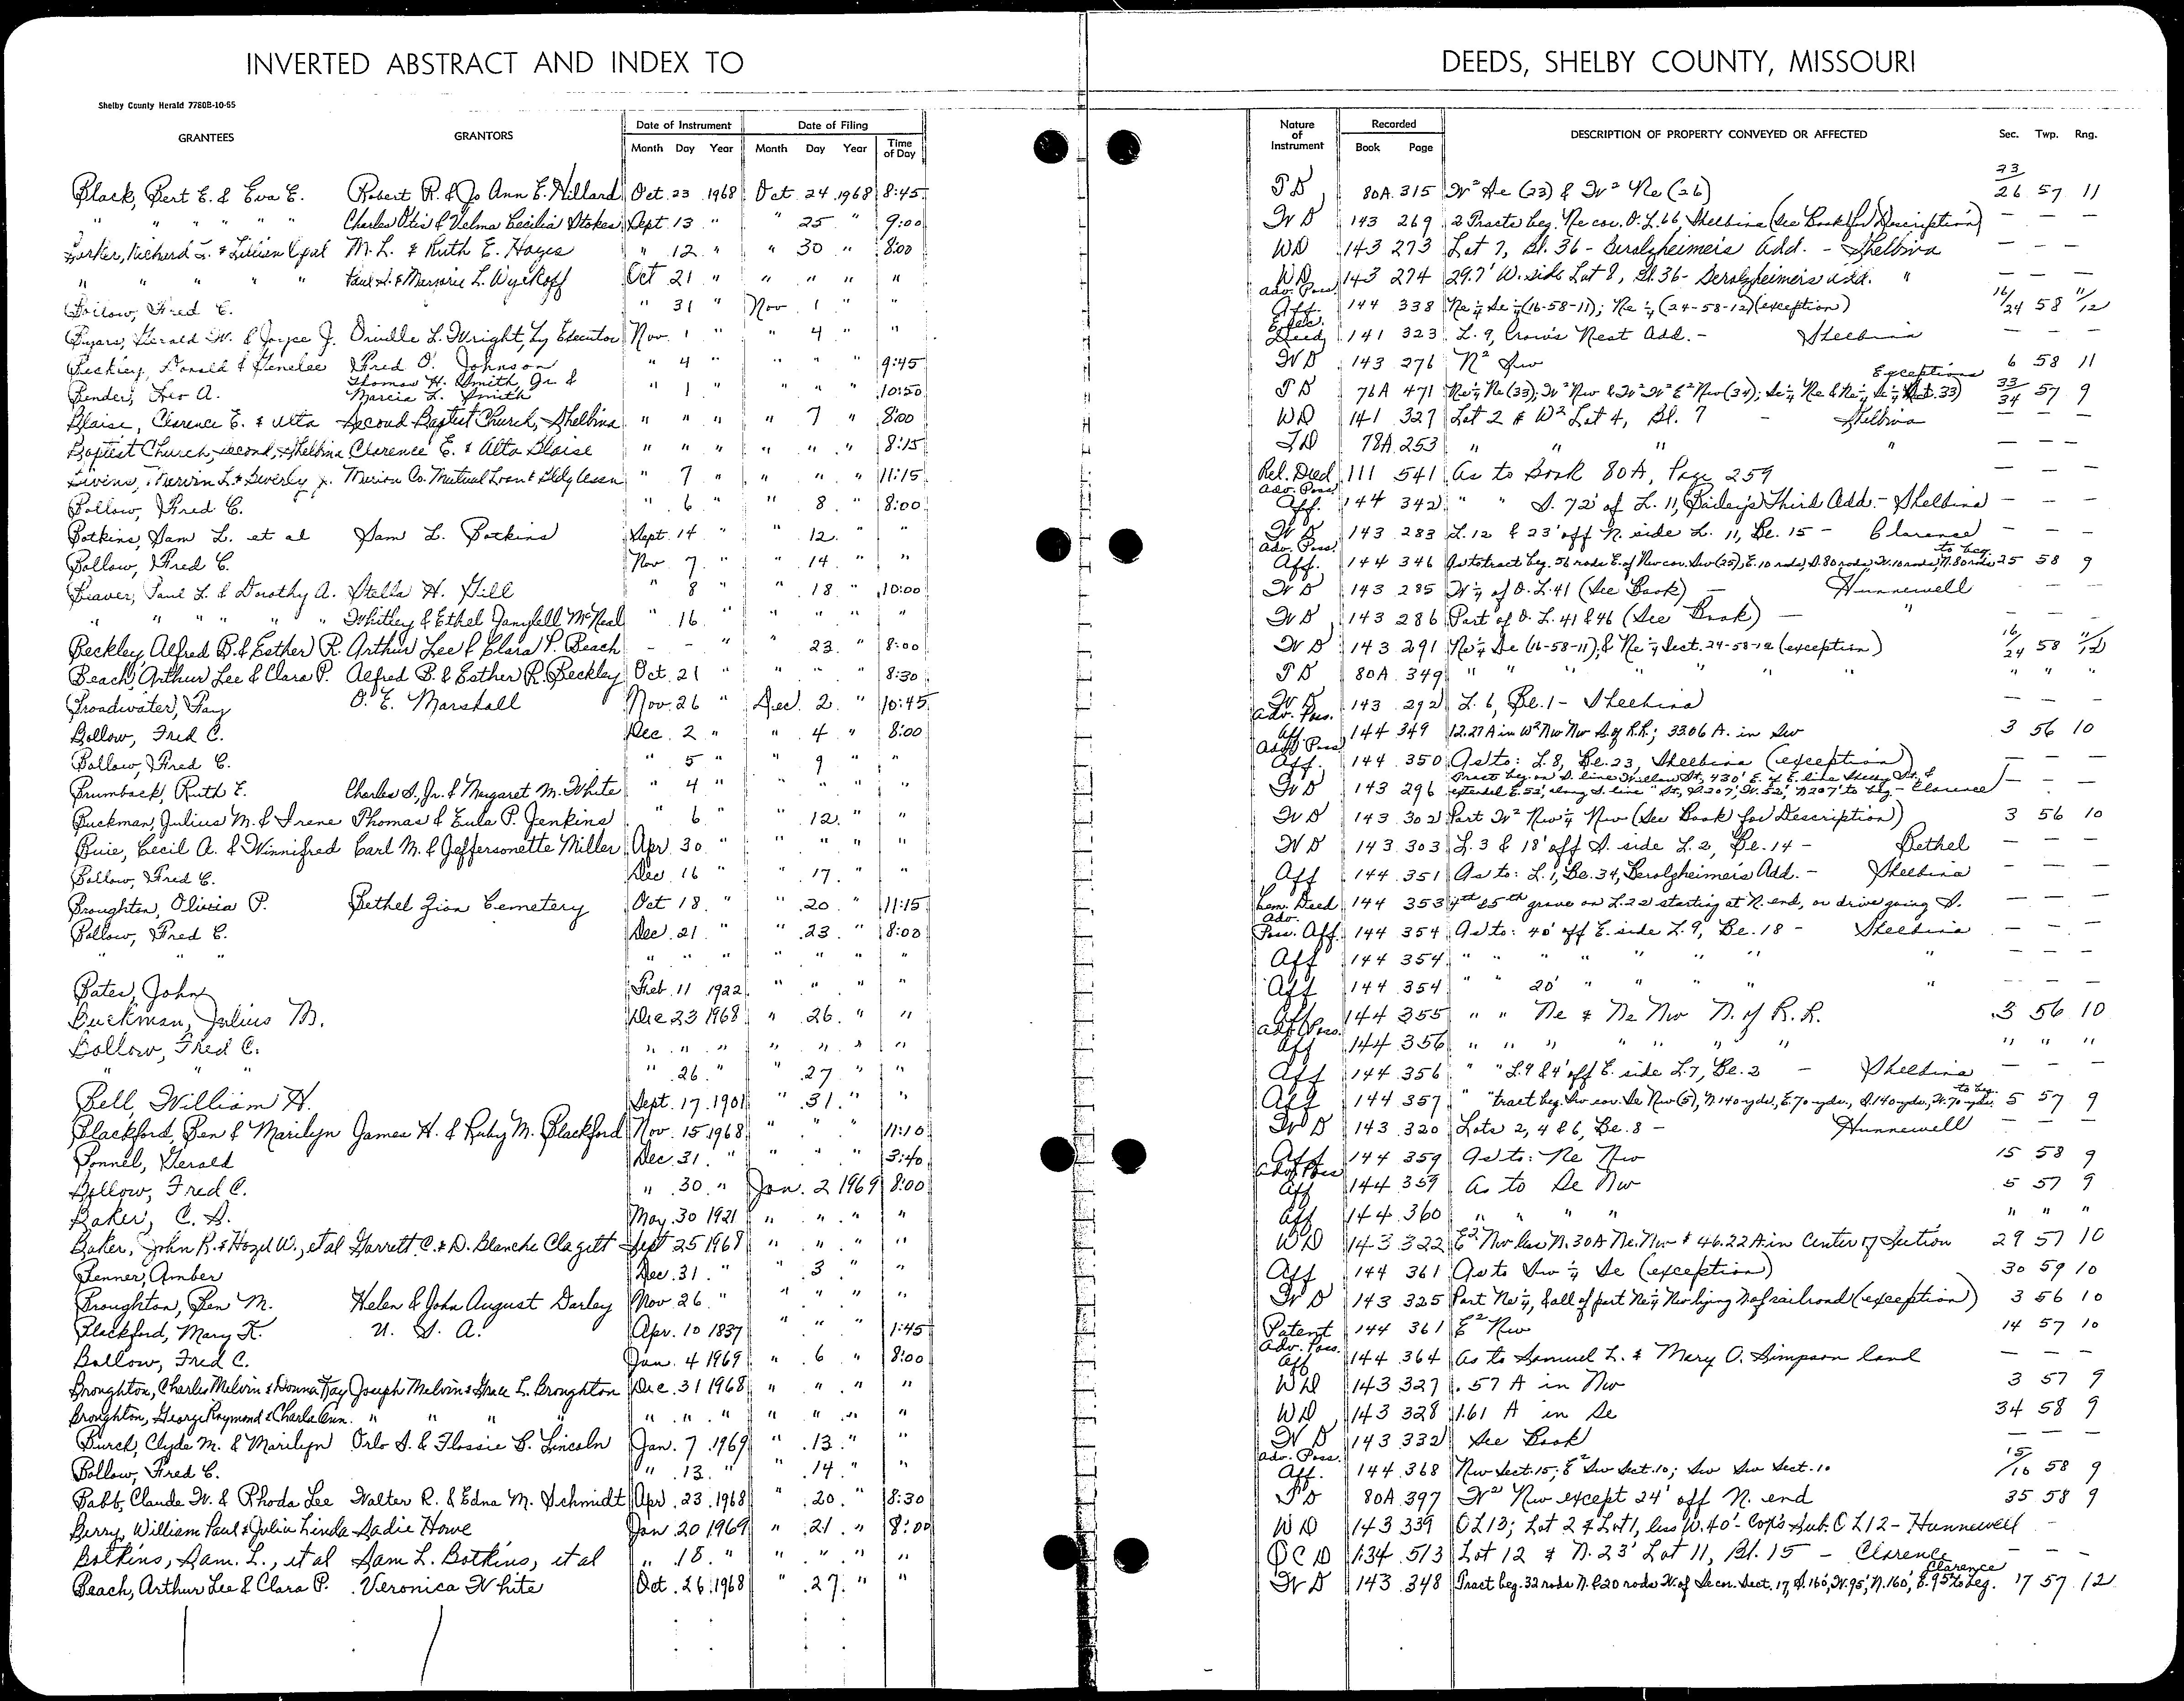 INVERTED ABSTRACT AND INDEX TO DEEDS, SHELBY COUNTY, MISSOURI
Shelby County Herald 7780B-10-65
GRANTEES GRANTORS Date of Instrument Date of Filing Nature of Instrument Recorded DESCRIPTION OF PROPERTY CONVEYED OR AFFECTED Sec. Twp. Rng.
Month Day Year Month Day Year Time of Day Book Page
Black, Bert E. & Eva E. Robert R. & Jo Ann E. Hillard Oct. 23 1968 Oct. 24 1968 8:45 T D 80A 315 W² Se (23) & W² Ne (26) 23/26 57 11
" " " " Charles Otis & Velma Cecilia Stokes Sept. 13 " " 25 " 9:00 W D 143 269 2 Tracts beg. Ne cor. O.L. 66, Shelbina (See Book for Description) — — —
Richard L. & Lillian Opal M. L. & Ruth E. Hayes " 12 " " 30 " 8:00 WD 143 273 Lot 7, Bl. 36 - Gerolzheimer's Add. - Shelbina — — —
" " " " Paul S. & Marjorie L. Wyckoff Oct 21 " " " " " WD 143 274 29.7' W. side Lot 8, Bl. 36 - Gerolzheimers Add. " — — —
Bollow, Fred C. " 31 " Nov. 1 " " Adv. Poss. Aff. 144 338 Ne ¼ Se ¼ (16-58-11); Ne ¼ (24-58-12) (exception) 16/24 58 11/12
Byars, Gerald W. & Joyce J. Orville L. Wright, by Executor Nov. 1 " " 4 " " Exec. Deed 141 323 L. 9, Crow's Nest Add. - Shelbina — — —
Donald & Jenelee Fred O. Johnson " 4 " " " " 9:45 W D 143 276 N² Sw 6 58 11
Bender, Leo A. Thomas H. Smith, Jr. & Marcia L. Smith " 1 " " " " 10:50 T D 76A 471 Ne ¼ Ne (33); W² Nw & W² W² E² Nw (34); Se ¼ Ne & Ne ¼ Se ¼ (Sect. 33) Exceptions 33/34 57 9
Blaise, Clarence E. & Alta Second Baptist Church, Shelbina " " " " 7 " 8:00 WD 141 327 Lot 2 & W² Lot 4, Bl. 7 - Shelbina — — —
Baptist Church, Second, Shelbina Clarence E. & Alta Blaise " " " " " " 8:15 T D 78A 253 " " " " — — —
Marvin L. & Beverly J. Marion Co. Mutual Loan & Bldg Assn " 7 " " " " 11:15 Rel. Deed 111 541 As to Book 80A, Page 259 — — —
Bollow, Fred C. " 6 " " 8 " 8:00 Adv. Poss. Aff. 144 342 " " S. 72' of L. 11, Bailey's Third Add. - Shelbina — — —
Botkins, Sam L. et al Sam L. Botkins Sept. 14 " " 12 " " W D 143 283 L. 12 & 23' off N. side L. 11, Bl. 15 - Clarence — — —
Bollow, Fred C. Nov. 7 " " 14 " " Adv. Poss. Aff. 144 346 As to tract beg. 56 rods E. of Nw cor. Sw (25), E. 10 rods, S. 80 rods, W. 10 rods, N. 80 rods to beg. 25 58 9
Beaver, Paul L. & Dorothy A. Stella H. Gill " 8 " " 18 " 10:00 W D 143 285 W ¼ of O. L. 41 (See Book) - Hunnewell — —
" " " " " Whitley & Ethel McNeal " 16 " " " " " W D 143 286 Part of O. L. 41 & 46 (See Book) - " — —
Beckley, Alfred B. & Esther R. Arthur Lee & Clara P. Beach - - " " 23 " 8:00 W D 143 291 Ne ¼ Se (16-58-11); & Ne ¼ Sect. 24-58-12 (exception) 16/24 58 11/12
Beach, Arthur Lee & Clara P. Alfred B. & Esther R. Beckley Oct. 21 " " " " 8:30 T D 80A 349 " " " " " " " "
Broadwater, Fay O. E. Marshall Nov. 26 " Dec. 2 " 10:45 W D 143 292 L. 6, Bl. 1 - Shelbina — — —
Bollow, Fred C. Dec. 2 " " 4 " 8:00 Adv. Poss. Aff. 144 349 12.27 A in W² Nw Nw S. of R.R.; 33.06 A. in Sw 3 56 10
Bollow, Fred C. " 5 " " 9 " " Adv. Poss. Aff. 144 350 As to: L. 8, Bl. 23, Shelbina (exception) — — —
Brumback, Ruth E. Charles S., Jr. & Margaret M. White " 4 " " " " " W D 143 296 Tract beg. on S. line Willow St., 430' E. of E. line Shelby St., & extended E. 52', along S. line " St., S. 207', W. 52', N. 207' to beg. - Clarence — — —
Buckman, Julius M. & Irene Thomas & Eula P. Jenkins " 6 " " 12 " " W D 143 302 Part W² Nw ¼ Nw (See Book for Description) 3 56 10
Buie, Cecil A. & Winnifred Carl M. & Jeffersonette Miller Apr. 30 " " " " " W D 143 303 L. 3 & 18' off S. side L. 2, Bl. 14 - Bethel — — —
Bollow, Fred C. Dec. 16 " " 17 " " Aff 144 351 As to: L. 1, Bl. 34, Gerolzheimer's Add. - Shelbina — — —
Broughton, Olivia P. Bethel Zion Cemetery Oct 18 " " 20 " 11:15 Cem. Deed 144 353 4th & 5th grave on L. 22 starting at N. end, on drive going S. — — —
Bollow, Fred C. Dec. 21 " " 23 " 8:00 Adv. Poss. Aff. 144 354 As to: 40' off E. side L. 9, Bl. 18 - Shelbina — — —
" " " " " " " " " " Aff 144 354 " " " " " " " — — —
Bates, John Feb. 11 1922 " " " " Aff 144 354 " " 20' " " " " " — — —
Buckman, Julius M. Dec 23 1968 " 26 " " Aff 144 355 " " Ne & N2 Nw N. of R. R. 3 56 10
Bollow, Fred C. " " " " " " " Adv. Poss. Aff 144 356 " " " " " " " " " " "
" " " " 26 " " 27 " " Aff 144 356 " " L. 9 & 4' off E. side L. 7, Bl. 2 - Shelbina — — —
Bell, William H. Sept. 17 1901 " 31 " " Aff 144 357 " " tract beg. Sw cor. Se Nw (5), N. 140 yds., E. 70 yds., S. 140 yds., W. 70 yds. to beg. 5 57 9
Blackford, Ben & Marilyn James H. & Ruby M. Blackford Nov. 15 1968 " " " 11:10 W D 143 320 Lots 2, 4 & 6, Bl. 8 - Hunnewell — — —
Bonnel, Gerald Dec. 31 " " " " 3:40 Aff 144 359 As to: Ne Nw 15 58 9
Bollow, Fred C. " 30 " Jan. 2 1969 8:00 Adv. Poss Aff 144 359 As to Se Nw 5 57 9
Baker, C. S. May 30 1921 " " " " Aff 144 360 " " " " " " "
Baker, John R. & Hazel W., et al Garrett C. & D. Blanche Clagett Sept 25 1968 " " " " WD 143 322 E² Nw less N. 30 A Ne Nw & 46.22 A in Center of Section 29 57 10
Benner, Amber Dec. 31 " " 3 " " Aff 144 361 As to Sw ¼ Se (exception) 30 59 10
Broughton, Ben M. Helen & John August Darley Nov. 26 " " " " " W D 143 325 Part Ne ¼, & all of part Ne ¼ Nw lying N. of railroad (exception) 3 56 10
Blackford, Mary K. U. S. A. Apr. 10 1837 " " " 1:45 Patent 144 361 E² Nw 14 57 10
Bollow, Fred C. Jan. 4 1969 " 6 " 8:00 Adv. Poss. Aff 144 364 As to Samuel L. & Mary O. Simpson land — — —
Broughton, Charles Melvin & Donna Fay Joseph Melvin & Grace L. Broughton Dec. 31 1968 " " " " WD 143 327 .57 A in Nw 3 57 9
Broughton, George Raymond & Charla Ann " " " " " " " " " " " WD 143 328 1.61 A in Se 34 58 9
Burch, Clyde M. & Marilyn Orlo S. & Flossie B. Lincoln Jan. 7 1969 " 13 " " W D 143 332 See Book — — —
Bollow, Fred C. " 13 " " 14 " " Adv. Poss. Aff. 144 368 Nw Sect. 15; E² Sw Sect. 10; Sw Sw Sect. 10 15/10 58 9
Babb, Claude W. & Rhoda Lee Walter R. & Edna M. Schmidt Apr. 23 1968 " 20 " 8:30 T D 80A 397 W² Nw except 24' off N. end 35 58 9
Berry, William Paul & Julia Linda Sadie Howe Jan 20 1969 " 21 " 8:00 WD 143 339 OL 13; Lot 2 & Lot 1, less W. 40' - Cox's Sub. O L 12 - Hunnewell -
Botkins, Sam. L., et al Sam L. Botkins, et al " 18 " " " " " Q C D 134 513 Lot 12 & N. 23' Lot 11, Bl. 15 - Clarence — — —
Beach, Arthur Lee & Clara P. Veronica White Oct. 26 1968 " 27 " " W D 143 348 Tract beg. 32 rods N. & 20 rods W. of Se cor. Sect. 17, S. 160', W. 95', N. 160', E. 95' to beg. Clarence 17 57 12